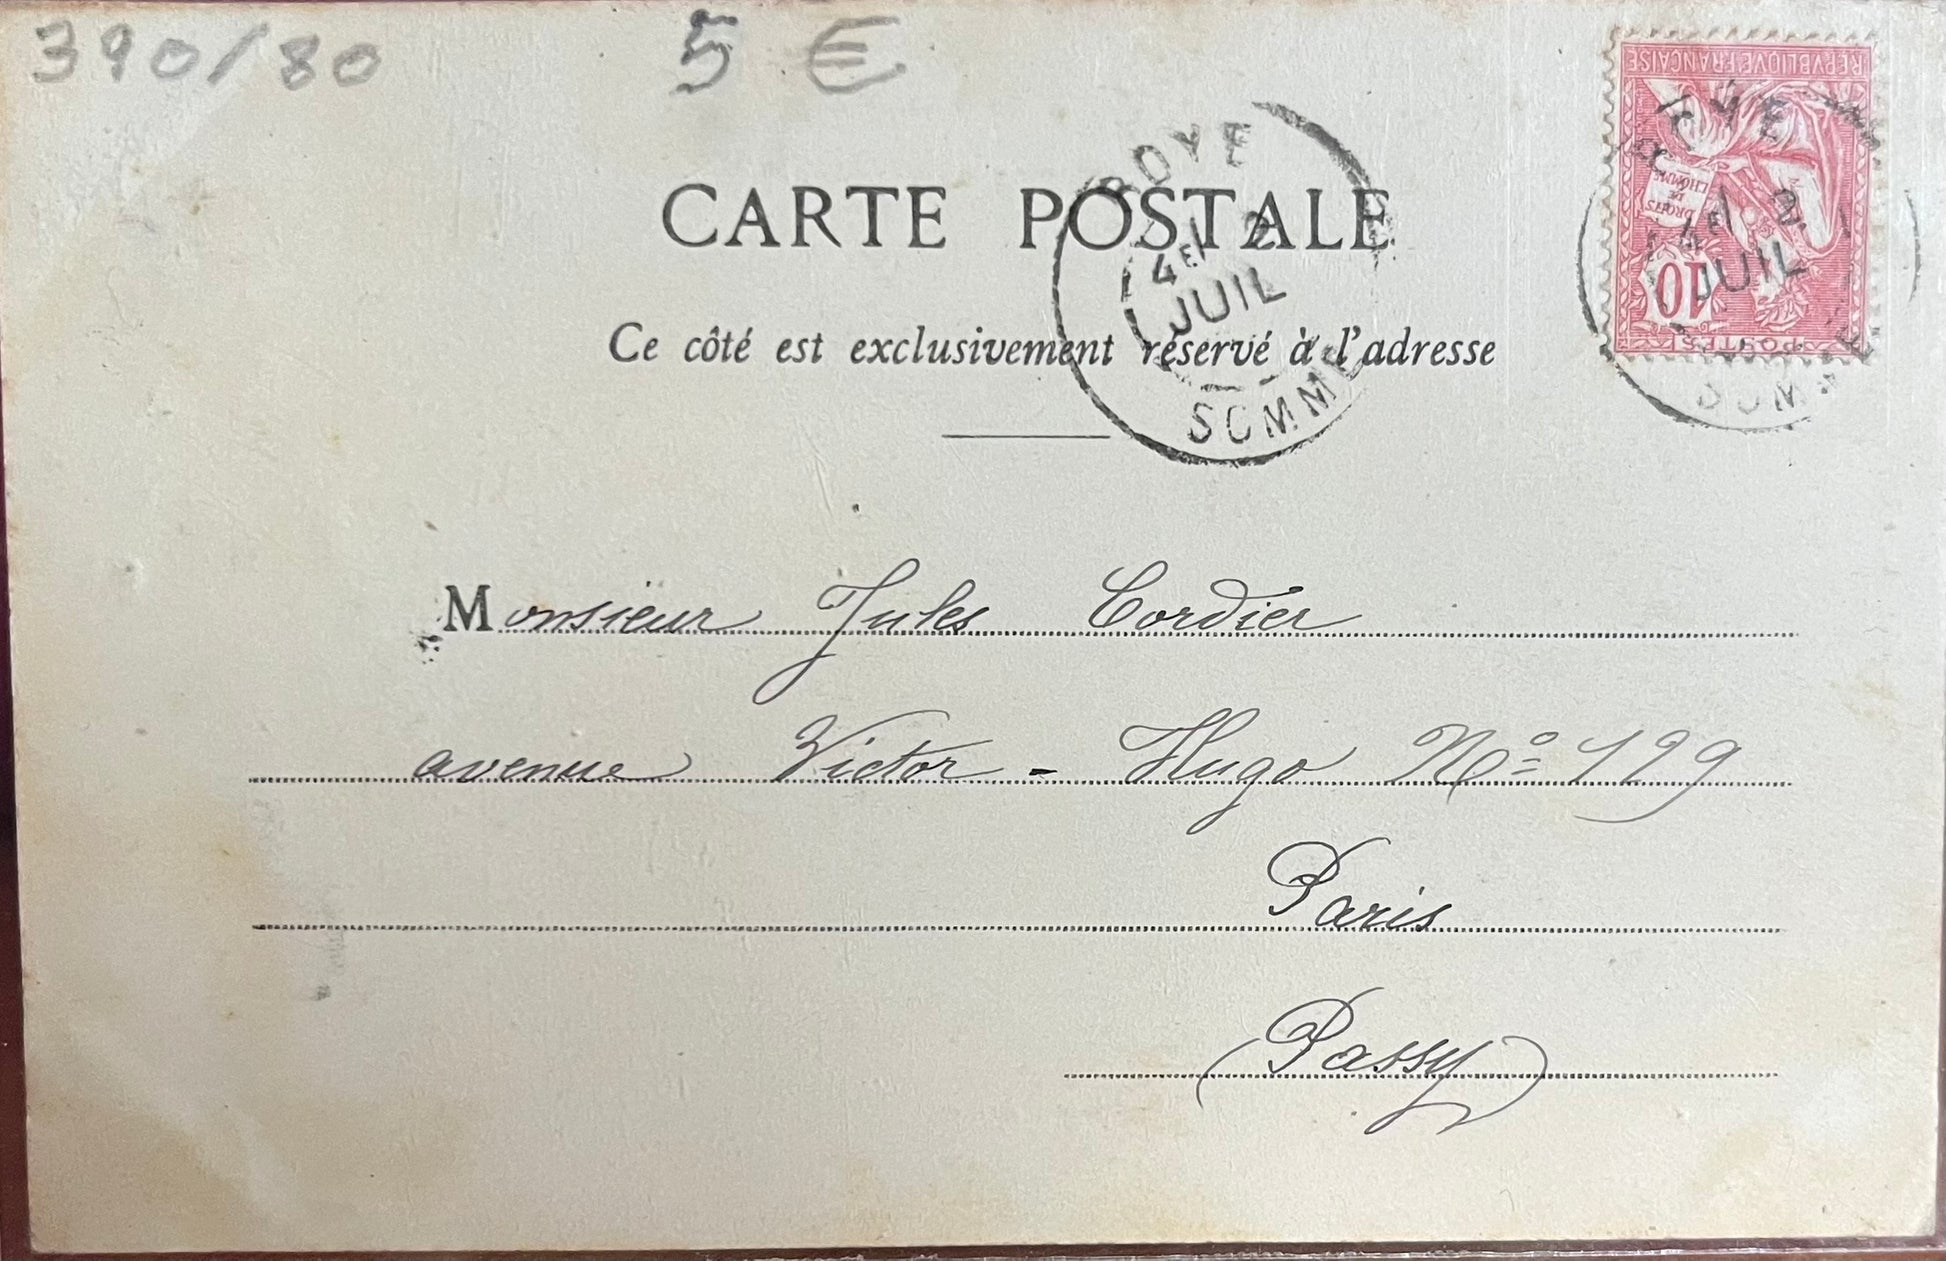 390/80 5 €
REPVBLIQVE FRANÇAISE
DROITS
DE
L'HOMME
10
POSTES
ROYE
4E 2
JUIL
SOMME
ROYE
4E 2
JUIL
SOMME
CARTE POSTALE
Ce côté est exclusivement réservé à l'adresse
Monsieur Jules Cordier
avenue Victor-Hugo No 129
Paris
(Passy)